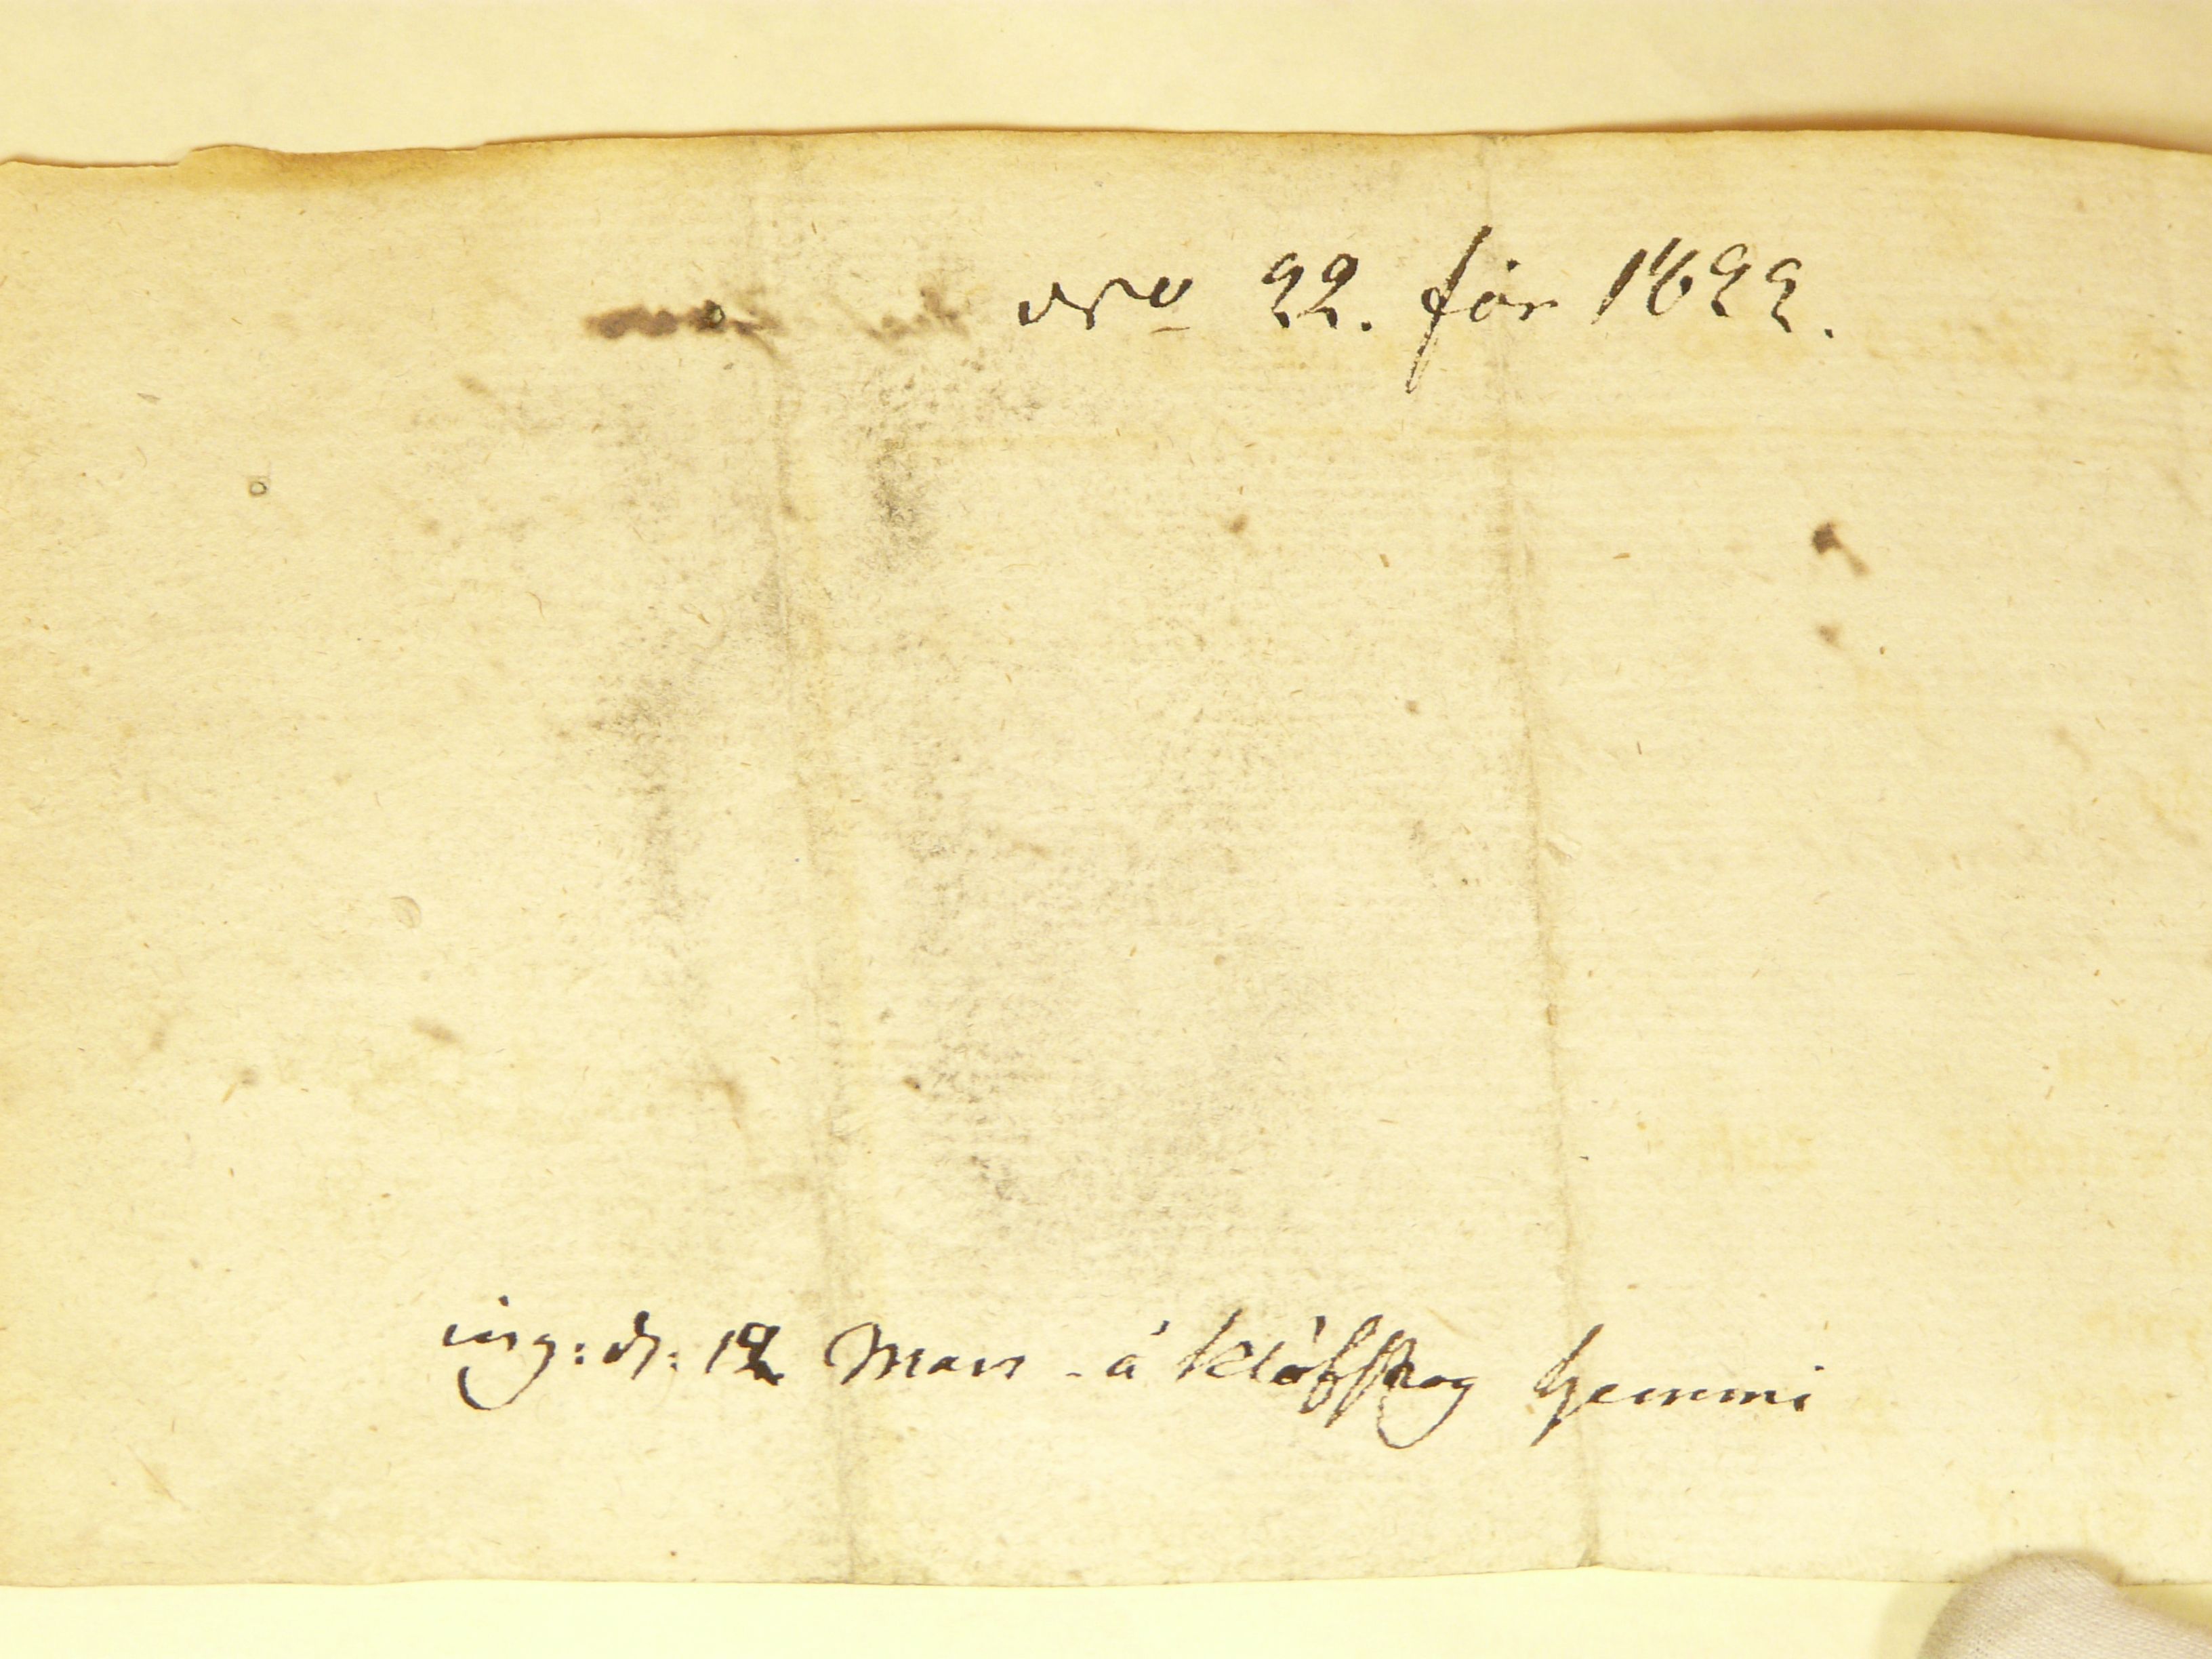 No 22. för 1822.
ing: d: 12 Mars - å Klöfskog hemmi